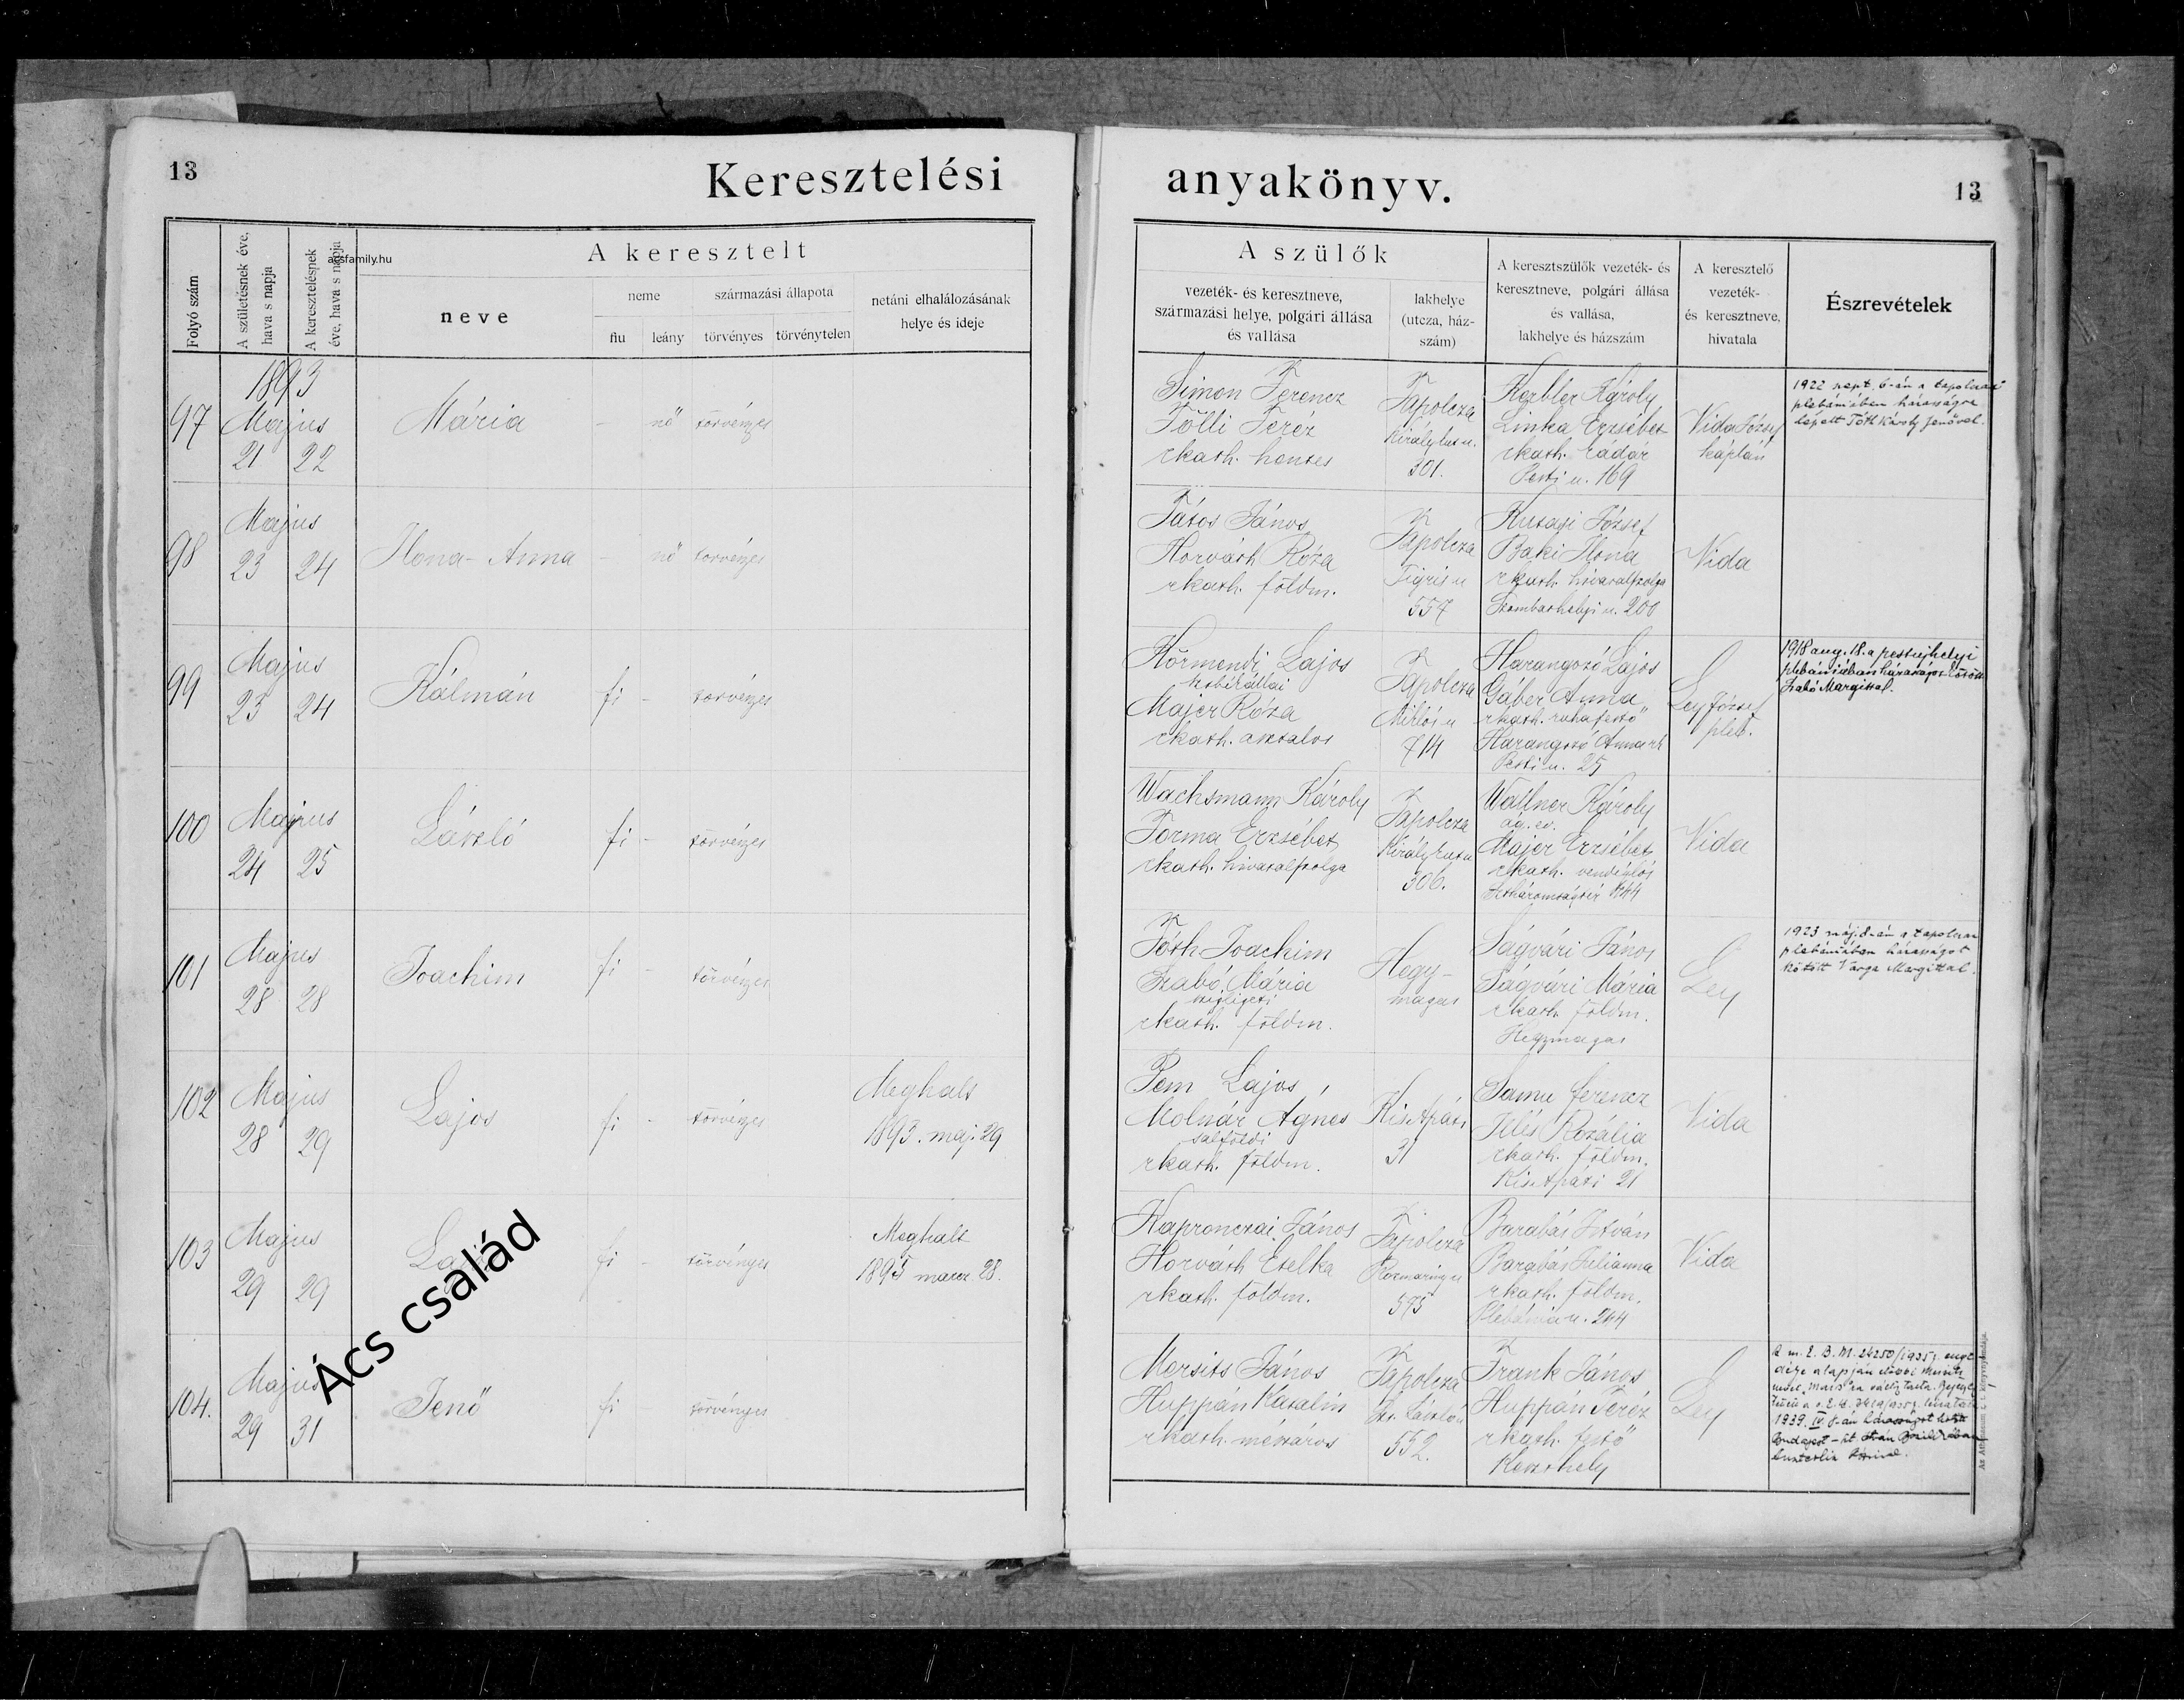 13
Keresztelési
anyakönyv.
13
Folyó szám
A születésnek éve, hava s napja
A keresztelésnek éve, hava s napja
acsfamily.hu
A keresztelt
neve
neme
fiu
leány
származási állapota
törvényes
törvénytelen
netáni elhalálozásának
helye és ideje
A szülők
vezeték- és keresztneve,
származási helye, polgári állása
és vallása
lakhelye
(utcza, ház-
szám)
A keresztszülők vezeték- és
keresztneve, polgári állása
és vallása,
lakhelye és házszám
A keresztelő
vezeték-
és keresztneve,
hivatala
Észrevételek
1893
97
Majus
21 22
Mária
-
nő
törvényes
Simon Ferencz
Tölli Teréz
rkath. hentes
Tapolcza
Király kut u.
301.
Kerbler Károly
Linka Erzsébet
rkath.
Pesti u. 169
Vida József
káplán
1922 sept. 6-án a tapolczai
plebániában házasságra
lépett Tóth Károly Jenővel.
98
Majus
23 24
Ilona-Anna
-
nő
törvényes
Tátos János
Horváth Róza
rkath. földm.
Tapolcza
Tigris u
557
József
Baki Ilona
rkath. hivatalszolga
Szombathelyi u. 200
Vida
99
Majus
23 24
Kálmán
fi -
törvényes
Körmendi Lajos
Majer Róza
rkath. asztalos
Tapolcza
Miklós u
714
Harangozó Lajos
Gáber Anna
rkath. ruhafestő
Harangozó Anna rk
Pesti u. 25
Ley József
pleb.
1918 aug. 18. a pestujhelyi
plebániában házasságot kötött
Szabó Margittal.
100
Majus
24 25
László
fi -
törvényes
Wachsmann Károly
Torma Erzsébet
rkath. hivatalszolga
Tapolcza
Király kut u
306.
Wallner Károly
ág. ev.
Majer Erzsébet
rkath. vendéglős
Sztháromságtér 844
Vida
101
Majus
28 28
Joachim
fi -
törvényes
Tóth Joachim
Szabó Mária
szigligeti
rkath. földm.
Hegy-
magas
Ságvári János
Ságvári Mária
rkath. földm.
Hegymagas
Ley
1923 máj. 8-án a tapolczai
plebániában házasságot
kötött Varga Margittal.
102
Majus
28 29
Lajos
fi -
törvényes
Meghalt
1893. maj. 29
Pem Lajos
Molnár Agnes
salföldi
rkath. földm.
Kis Apáti
31
Samu ferencz
Illés Rozália
rkath. földm.
Kis Apáti 21
Vida
103
Majus
29 29
fi -
törvényes
Meghalt
1895 marcz 28.
Kapronczai János
Horváth Etelka
rkath. földm.
Tapolcza
Rozmaring u
595
Barabás István
Barabás Julianna
rkath. földm.
Plebánia u. 244
Vida
Ács család
104.
Majus
29 31
Jenő
fi -
törvényes
Mersits János
Huppán Katalin
rkath. mészáros
Tapolcza
Szt. László u
552.
Frank János
Huppán Teréz
rkath. festő
Keszthely
Ley
alapján
1939. IV. 8-án házasságot kötött
Budapest - Szt. István
Az Athenaeum r. t. könyvnyomdája.